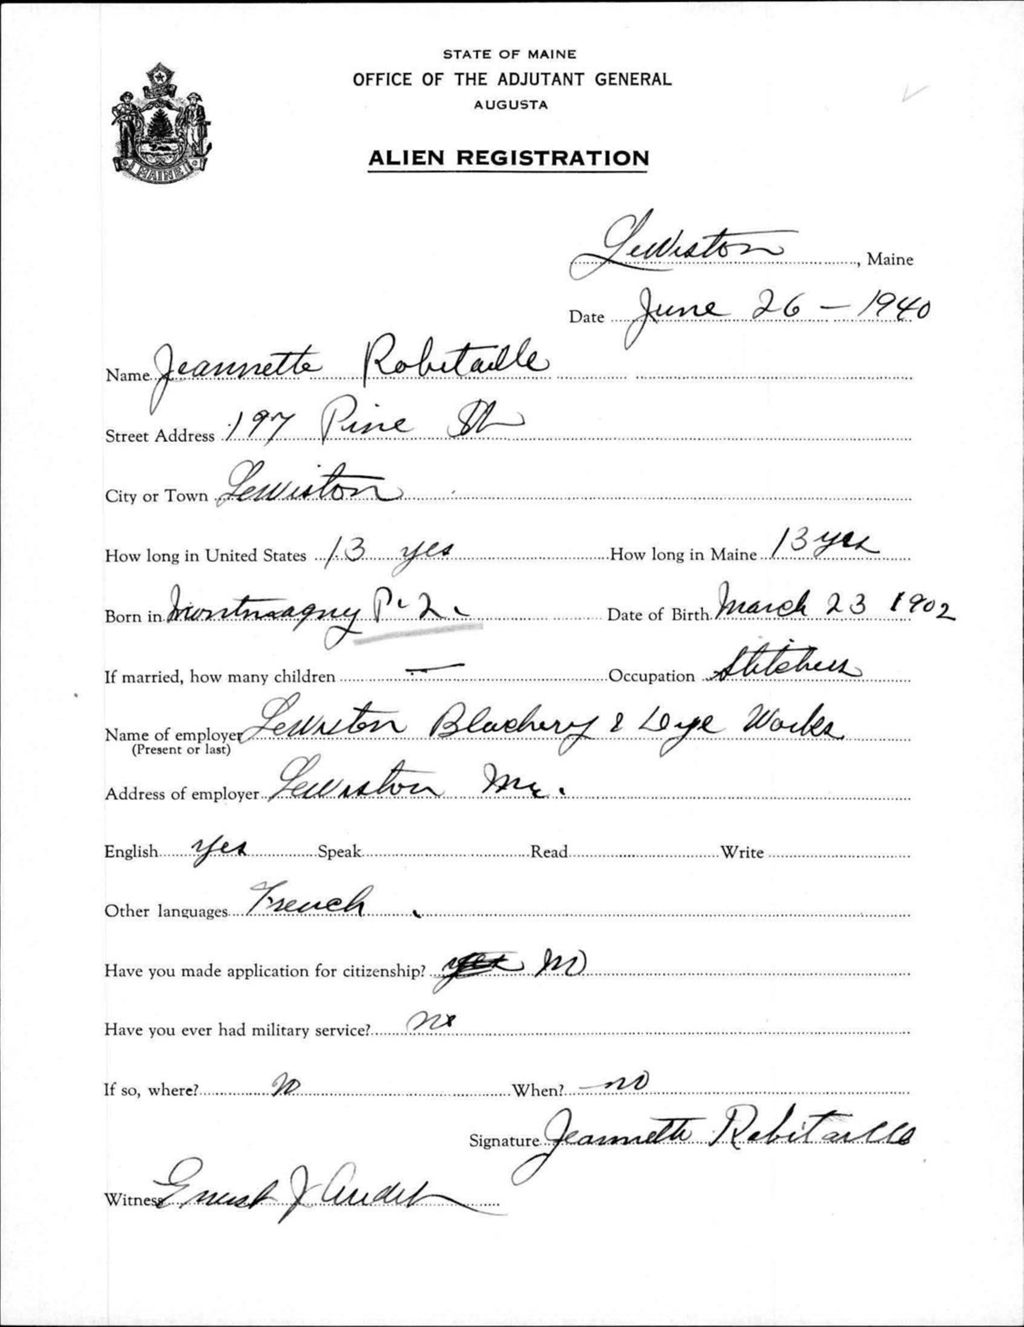 STATE OF MAINE
OFFICE OF THE ADJUTANT GENERAL
AUGUSTA
ALIEN REGISTRATION
MAINE
Lewiston, Maine
Date June 26 - 1940
Name Jeannette Robitaille
Street Address 197 Pine St
City or Town Lewiston
How long in United States 13 yes How long in Maine 13 yes
Born in Montmagny P. Q. Date of Birth March 23 1902
If married, how many children — Occupation Stitcher
Name of employer Lewiston Blachery & Dye Works
(Present or last)
Address of employer Lewiston Me.
English yes Speak Read Write
Other languages French.
Have you made application for citizenship? yes No
Have you ever had military service? no
If so, where? no When? no
Signature Jeannette Robitaille
Witness Ernest J Audet